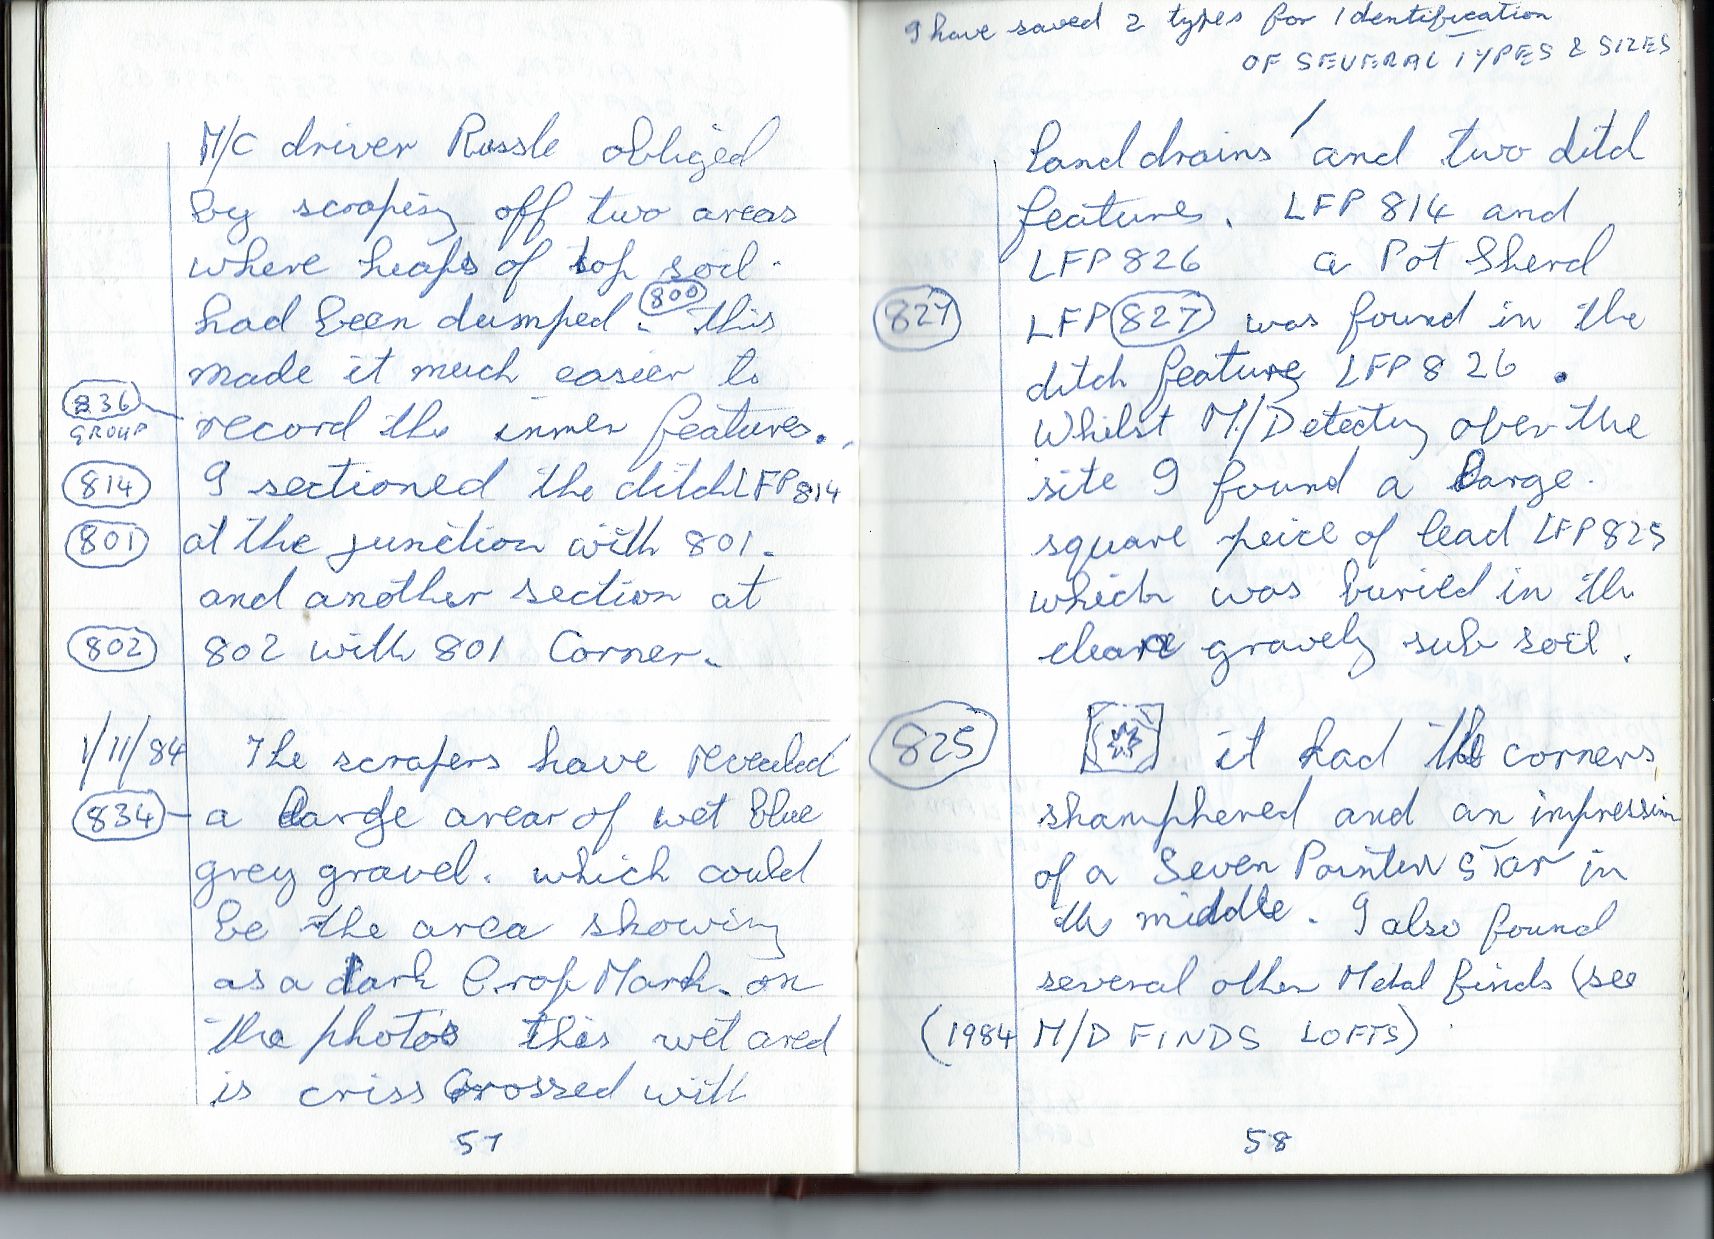 M/C driver Russle obliged
by scraping off two areas
where heaps of top soil.
had been dumped. (800) this
made it much easier to
836 GROUP record the inner features.
814 I sectioned the ditch LFP 814
801 at the junction with 801.
and another section at
802 802 with 801 Corner.
1/11/84 The scrapers have revealed
834 a large arear of wet blue
grey gravel. which could
be the area showing
as a dark Crop Mark. on
the photos this wet area
is criss crossed with
57
I have saved 2 types for Identification
OF SEVERAL TYPES & SIZES
Land drains / and two ditch
features. LFP 814 and
LFP 826 a Pot Sherd
827 LFP 827 was found in the
ditch feature LFP 826.
Whilst M/Detecting over the
site I found a large.
square peice of lead LFP 825
which was buried in the
clean gravely sub soil.
825 it had the corners
shamphered and an impression
of a Seven Pointed STar in
the middle. I also found
several other Metal finds (see
(1984 M/D FINDS LOFTS)
58